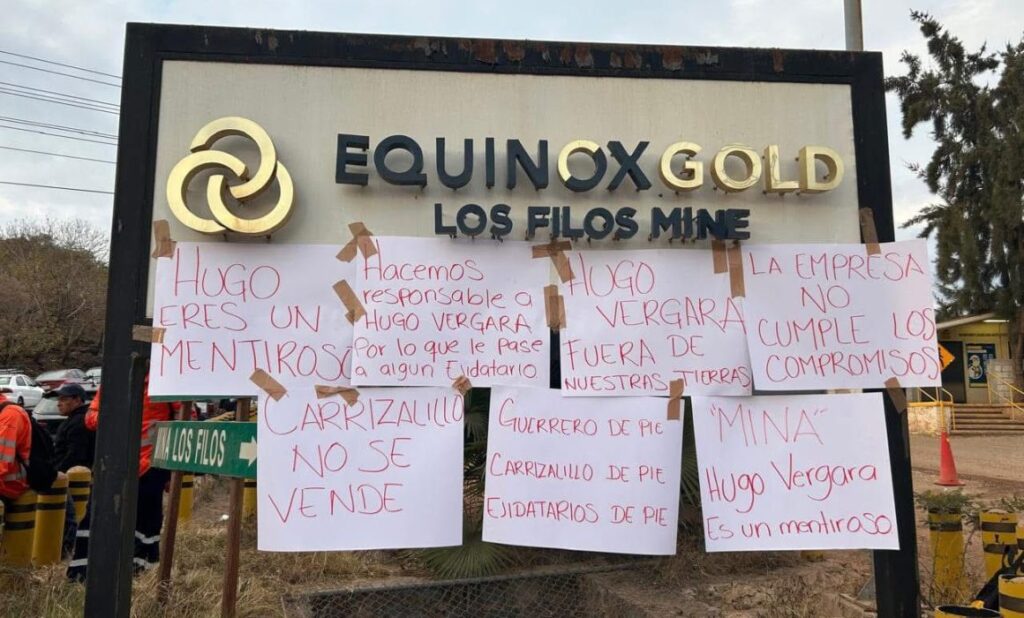 EQUINOX GOLD
LOS FILOS MINE
HUGO
ERES UN
MENTIROSO
HACEMOS
responsable a
HUGO VERGARA
Por lo que le Pase
a algun Ejidatario
HUGO
VERGARA
FUERA DE
NUESTRAS TIERRAS
LA EMPRESA
NO
CUMPLE LOS
COMPROMISOS
CARRIZALILLO
NO SE
VENDE
GUERRERO DE PIE
CARRIZALILLO DE PIE
EJIDATARIOS DE PIE
"MINA"
Hugo Vergara
Es un mentiroso
MINA LOS FILOS